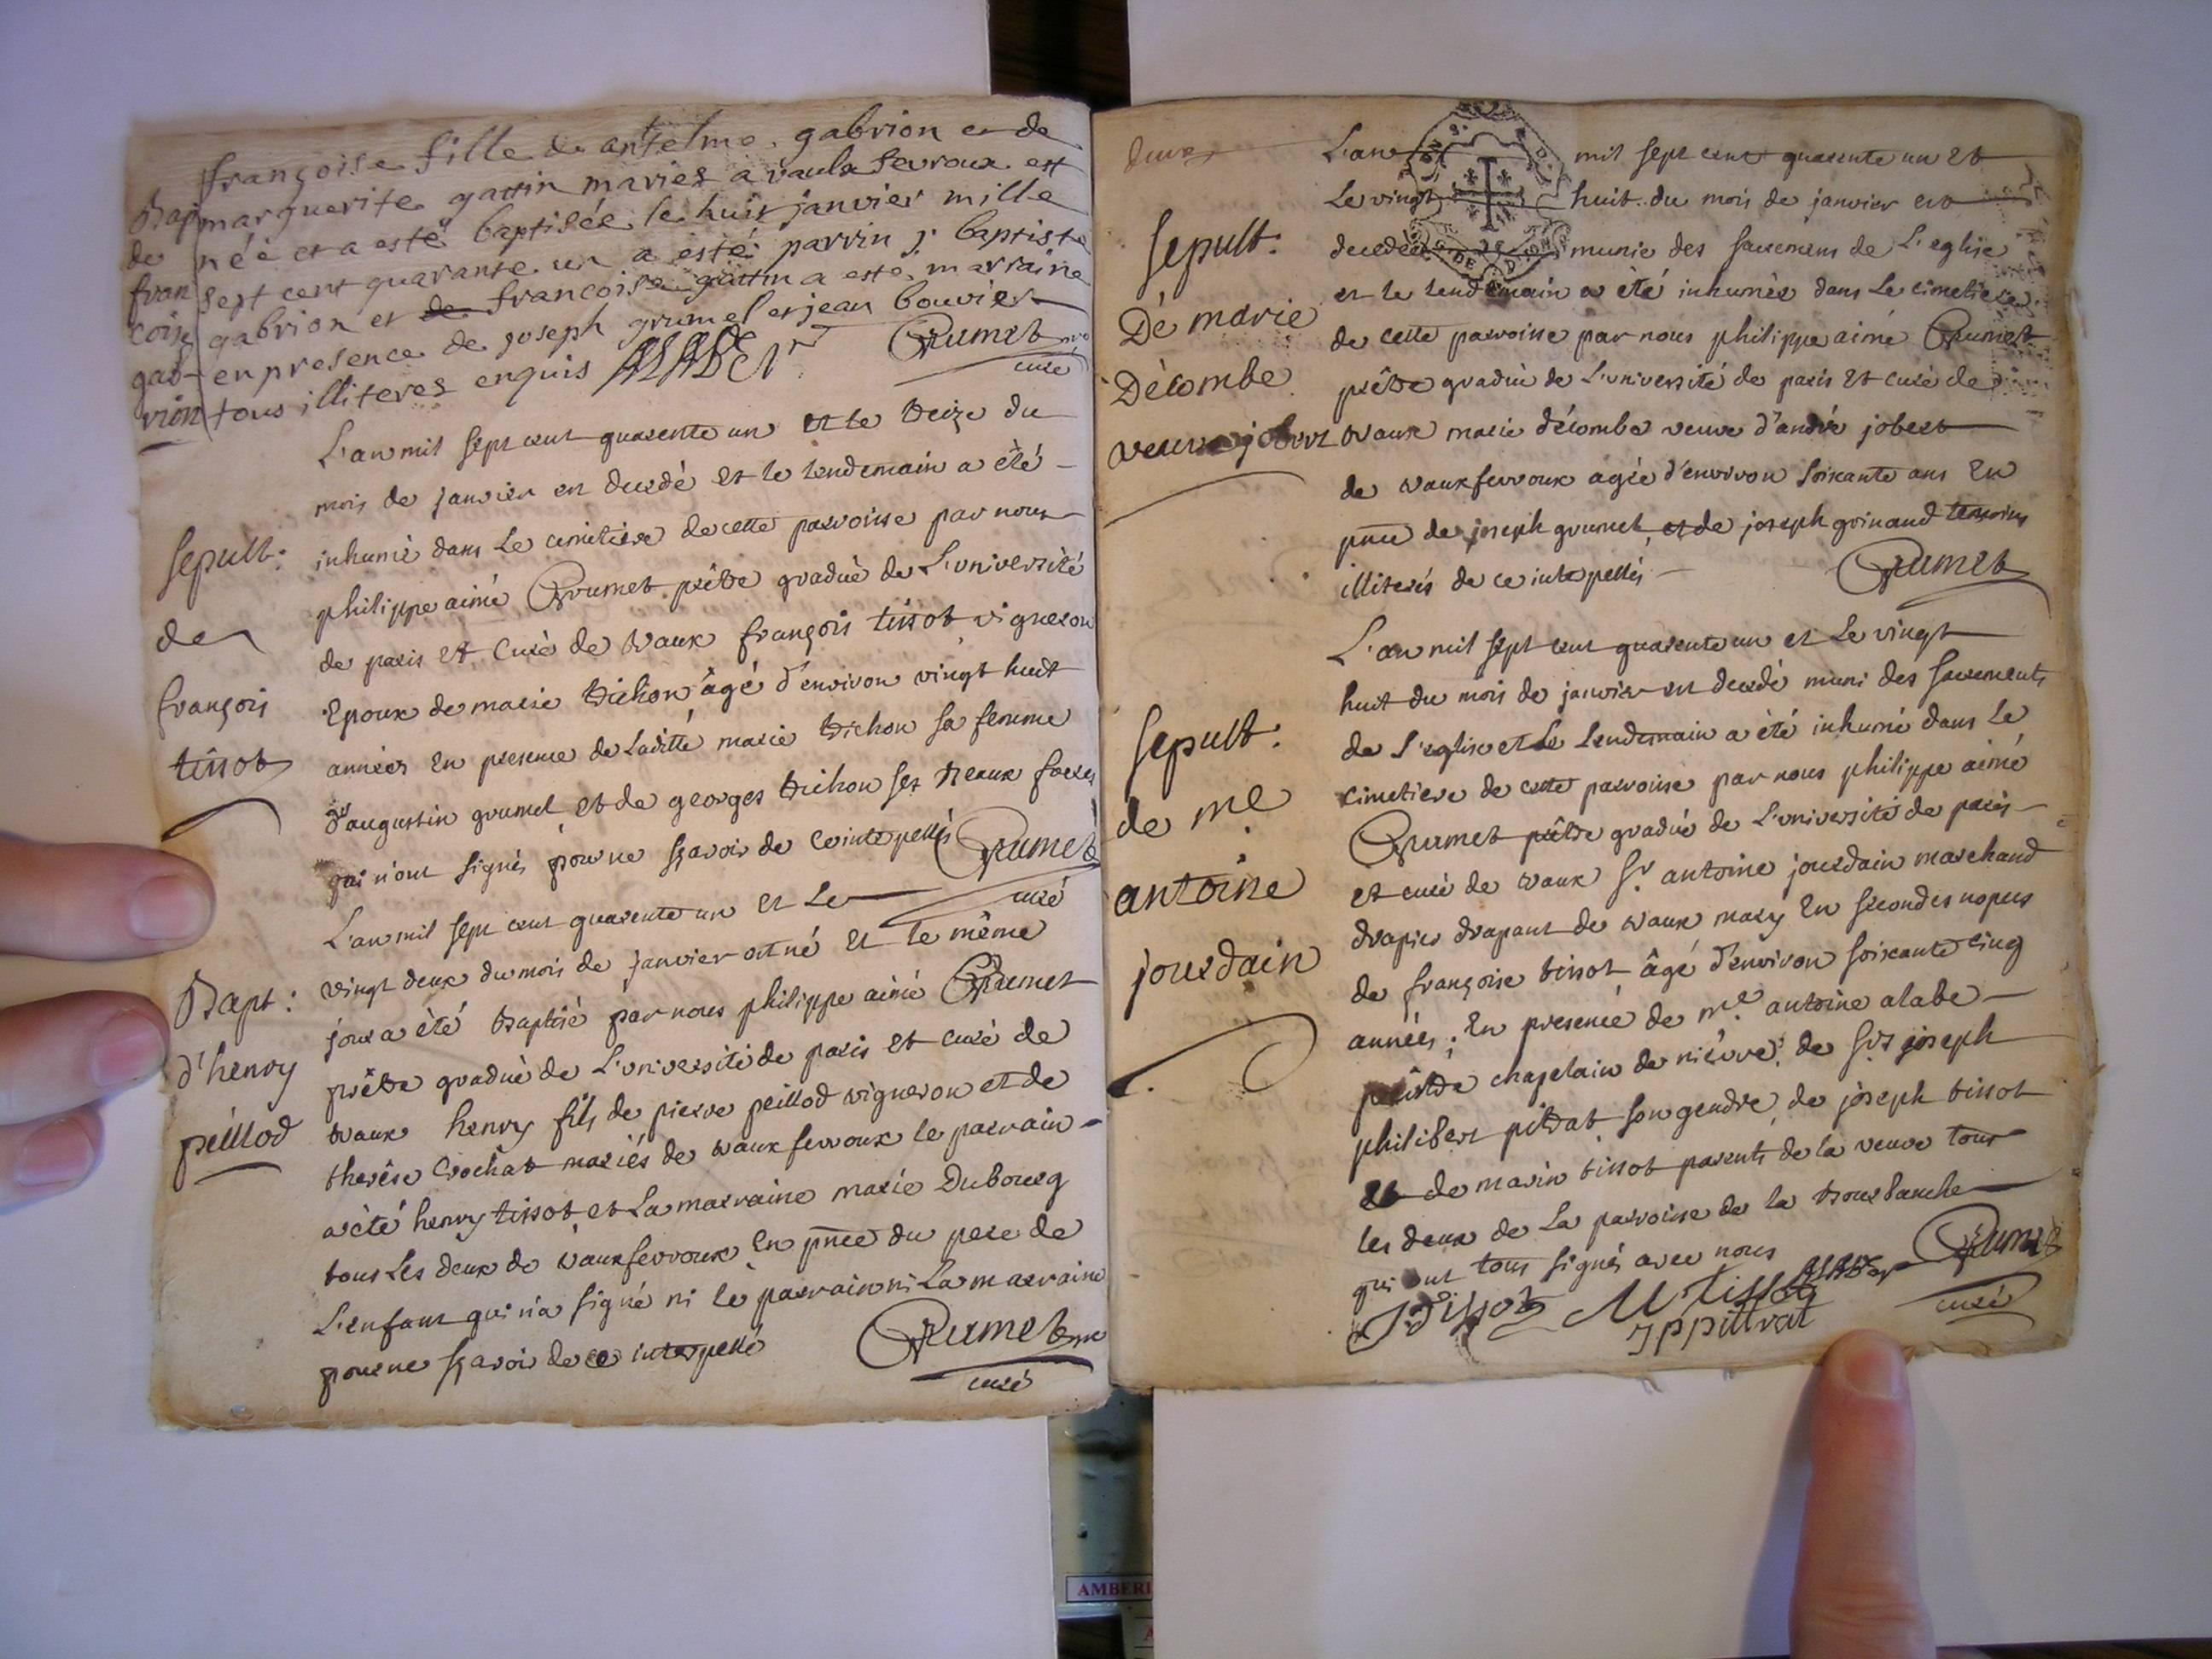 françoise fille de antelme gabrion et de
marguerite gattin mariez a vaulx fevroux est
néé et a esté baptisée le huit janvier mille
sept cent quarante un a esté parrin j. baptiste
gabrion et de francoise gattin a esté marraine
en presence de joseph grumel et jean bouvier
tous illiteres enquis ALABE
Grumet
curé
Bap
de
fran
coise
gab-
rion
L'an mil sept cent quarente un et le treize du
mois de janvier est decedé et le lendemain a été
inhumé dans le cimetiere de cette parroisse par nous
philippe aimé Grumet prêtre gradué de L'université
de paris et curé de vaux françois tissot vigneron
Epoux de marie trichon, âgé d'environ vingt huit
années En presence de laditte marie trichon sa femme
d'augustin grumel et de georges trichon ses beaux freres
qui n'ont signés pour ne sçavoir de ce interpellés Grumet
curé
sepult:
de
françois
tissot
L'an mil sept cent quarente un et Le
vingt deux du mois de janvier est né et le même
jour a été baptisé par nous philippe aimé Grumet
prêtre gradué de L'université de paris et curé de
vaux henry fils de pierre peillod vigneron et de
therêse Crochat mariés de vaux fevroux le parrain
a été henry tissot et La marraine marie Dubourg
tous Les deux de vaux fevroux En pnce du pere de
L'enfant qui n'a signé ni le parrain ni La marraine
pour ne sçavoir de ce interpellé
Grumet
curé
Bapt:
d'henry
peillod
deux
L'an mil sept cent quarente un et
Le vingt huit du mois de janvier est
decedée munie des sacremens de L'eglise
et le lendemain a été inhumée dans Le cimetiere
de cette parroisse par nous philippe aimé Grumet
prêtre gradué de L'université de paris et curé de
vaux marie décombe veuve d'andré jobert
de vaux fevroux agée d'environ soixante ans En
pnce de joseph grumet, et de joseph grinand temoins
illiterés de ce interpellés
Grumet
sepult:
De marie
Décombe
veuve jobert
L'an mil sept cent quarente un et Le vingt
huit du mois de janvier est decedé muni des sacrements
de L'eglise et Le Lendemain a été inhumé dans Le
cimetiere de cette parroisse par nous philippe aimé
Grumet prêtre gradué de L'université de paris
et curé de vaux Sr antoine jourdain marchand
drapier drapant de vaux mary En secondes nopces
de françoise tissot, âgé d'environ soixante cinq
années; En presence de me antoine alabe
prêtre chapelain de nievre, de Srs joseph
philibert pitrat son gendre, de joseph tissot
et de marin tissot parents de la veuve tous
les deux de La parroisse de la
qui ont tous signés avec nous
J Tissot M Tissot ALABE Grumet
J p pittrat
curé
sepult:
de me
antoine
jourdain
AMBERI